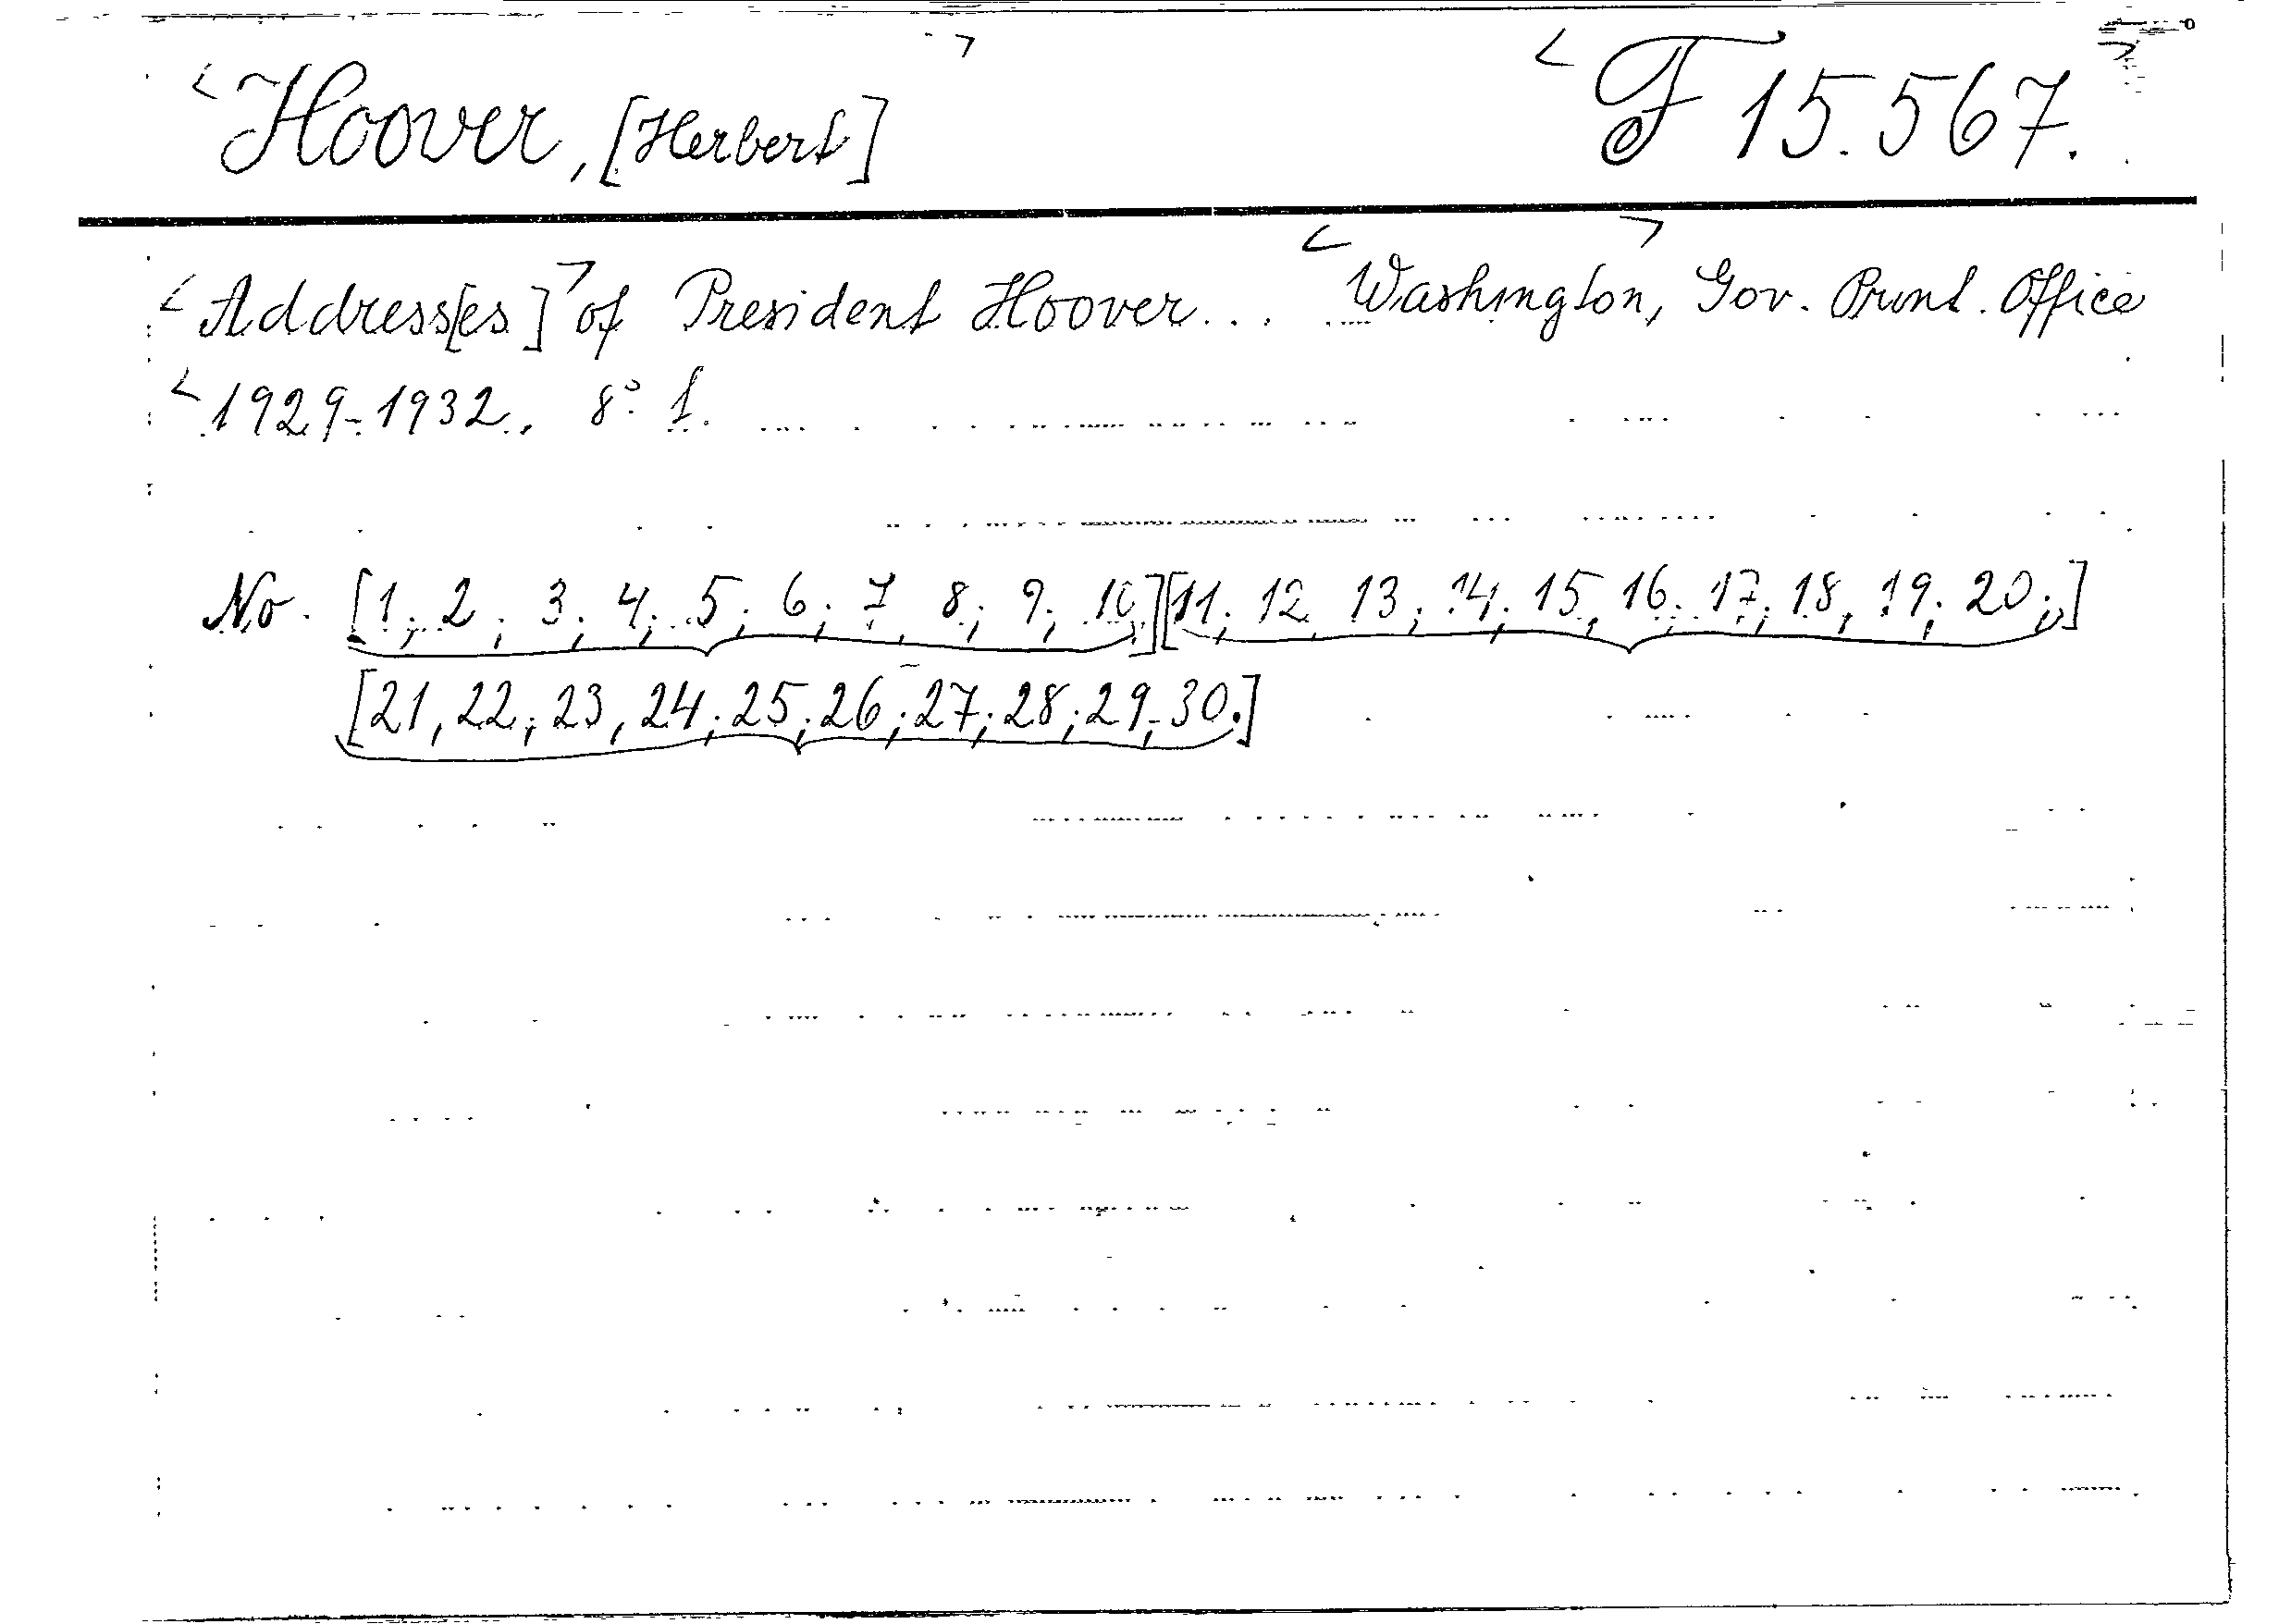 <Hoover, [Herbert]> <F 15.567.>
<Address[es]> of President Hoover... <Washington>, Gov. Print. Office
<1929-1932. 8° 1.
No. [1; 2; 3; 4; 5; 6; 7, 8; 9; 10;][11; 12, 13; 14; 15, 16; 17; 18, 19; 20;]
[21, 22; 23, 24; 25; 26; 27; 28; 29-30.]